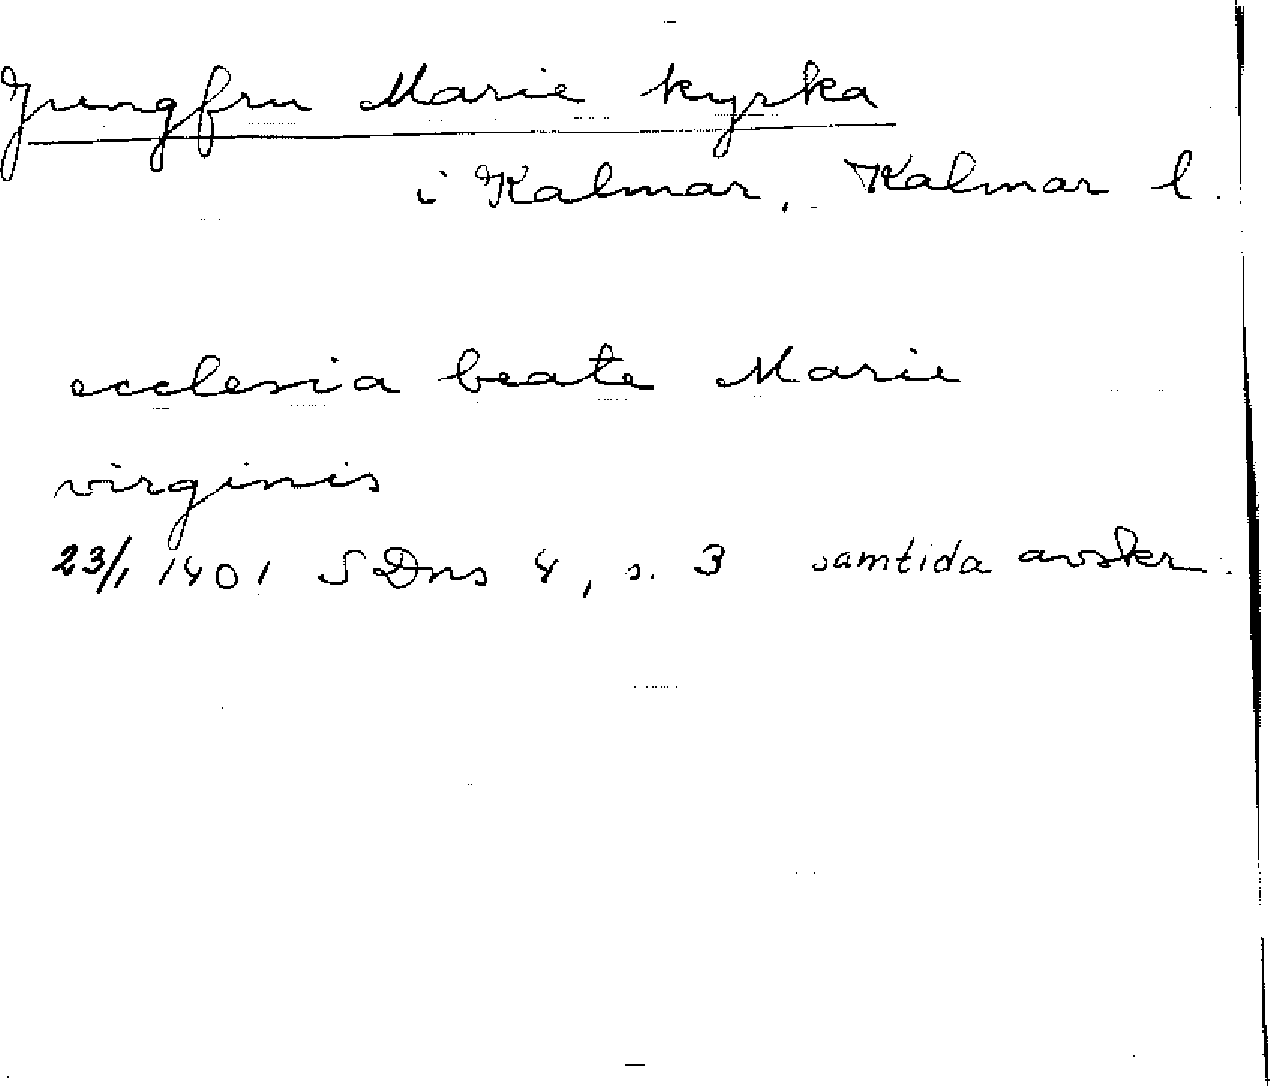 Jungfru Marie kyrka
i Kalmar, Kalmar l.
ecclesia beate Marie
virginis
23/1 1401 SDns 4, s. 3 samtida avskr.